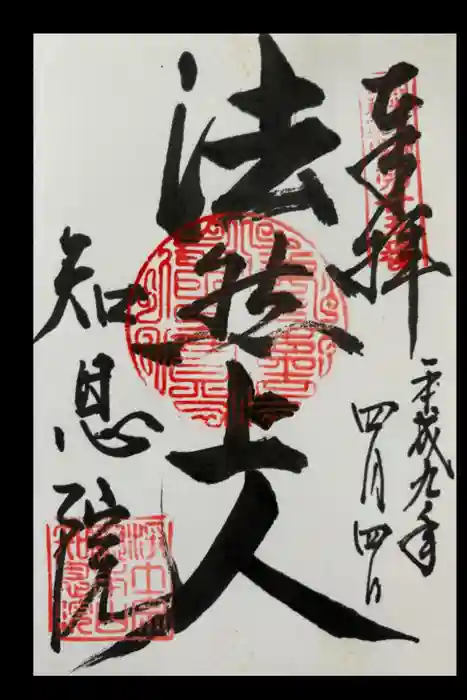 奉拝
平成九年
四月四日
法然上人
知恩院